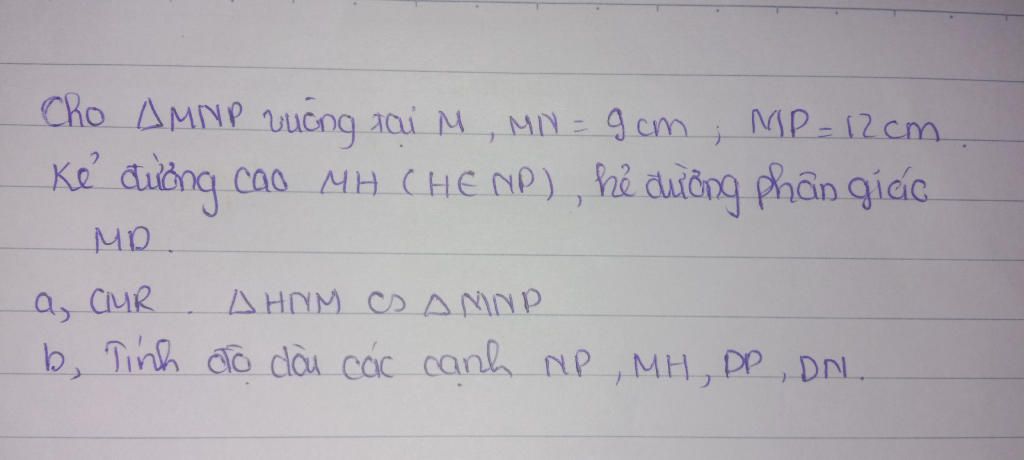 Cho ΔMNP vuông tại M, MN = 9cm; MP = 12cm.
Kẻ đường cao MH (H∈NP), kẻ đường phân giác
MD.
a, CMR. ΔHNM ∽ ΔMNP
b, Tính độ dài các cạnh NP, MH, DP, DN.